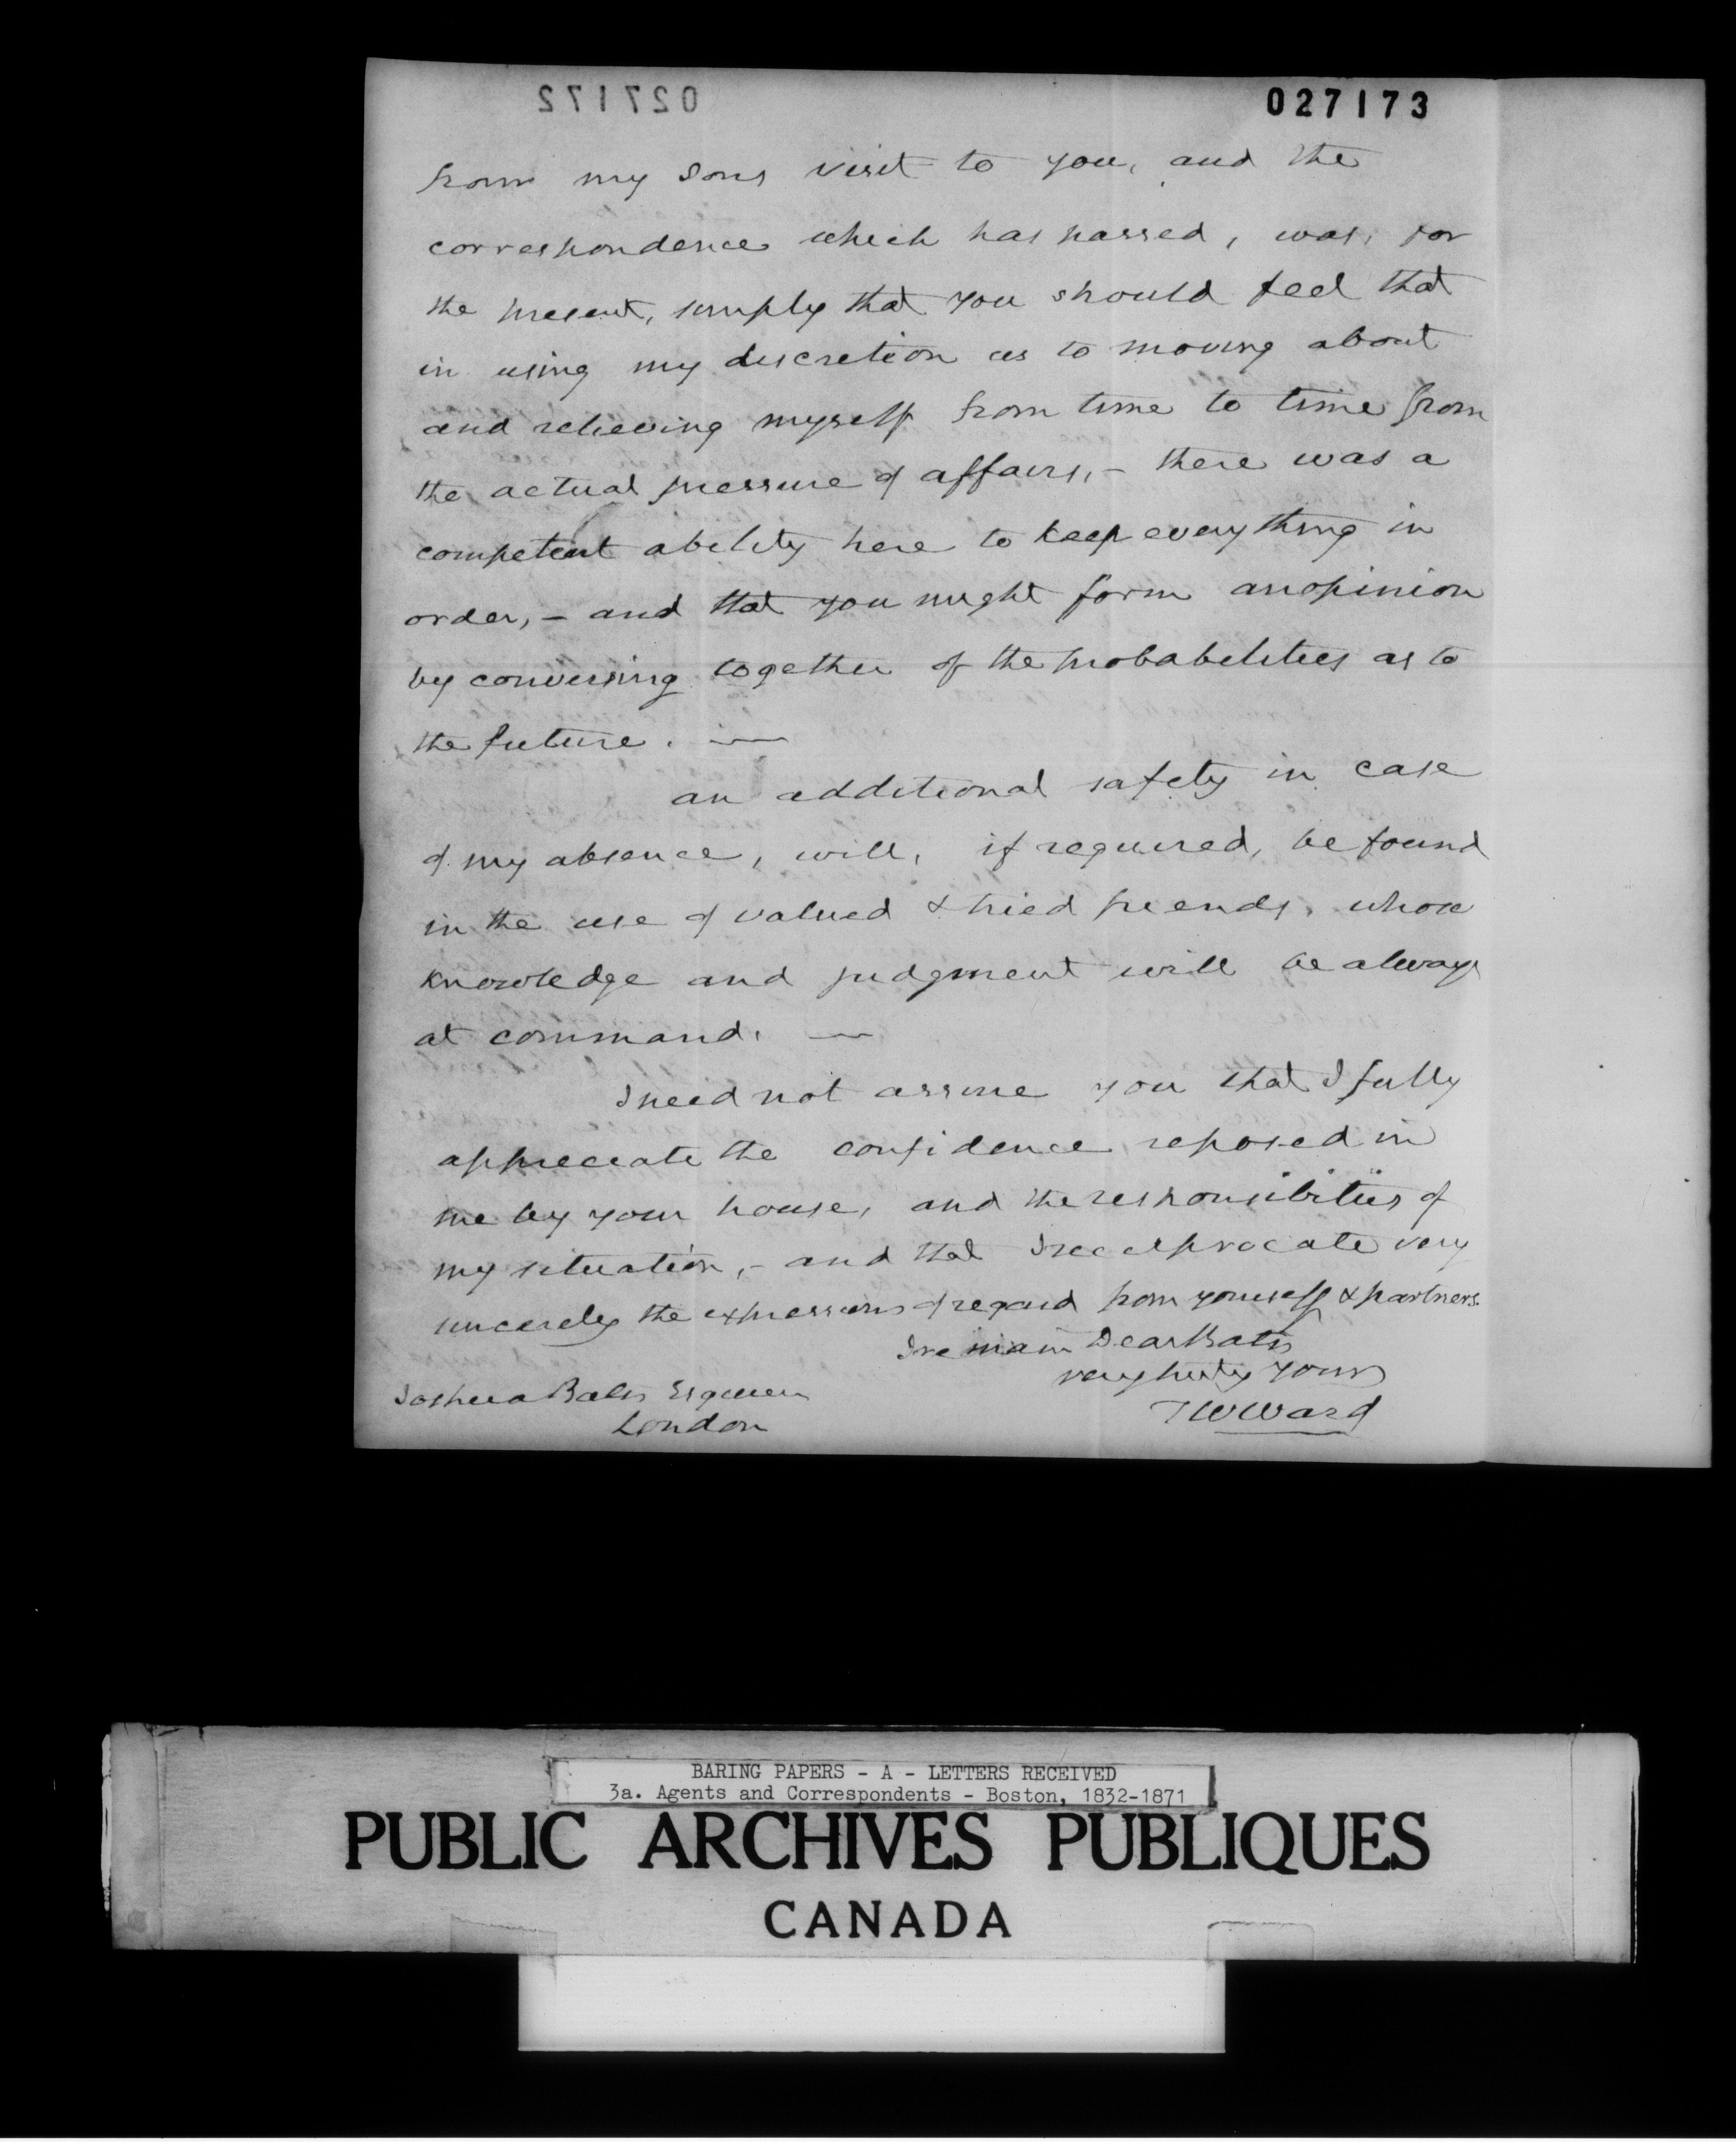 027172
027173
from my sons visit to you, and the
correspondence which has passed, was, for
the present, simply that you should feel that
in using my discretion as to moving about
and relieving myself from time to time from
the actual pressure of affairs, - there was a
competent ability here to keep everything in
order, - and that you might form an opinion
by conversing together of the probabilities as to
the future. —
an additional safety in case
of my absence, will, if required, be found
in the use of valued & tried friends, whose
knowledge and judgment will be always
at command. —
I need not assure you that I fully
appreciate the confidence reposed in
me by your house, and the responsibilities of
my situation, - and that I reciprocate very
sincerely the expressions of regard from yourself & partners.
I remain Dear Bates
very truly yours
TWWard
Joshua Bates Esquire
London
BARING PAPERS - A - LETTERS RECEIVED
3a. Agents and Correspondents - Boston, 1832-1871
PUBLIC ARCHIVES PUBLIQUES
CANADA